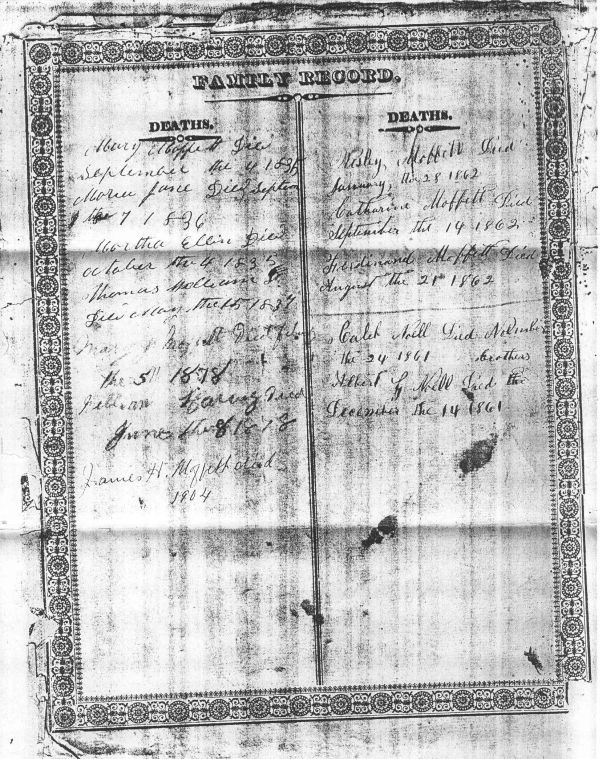 FAMILY RECORD.
DEATHS.
Mary Moffett Died
September the 4 1835
Maria Jane Died Septem
the 7 1836
Martha Ellen Died
October the 4 1835
Thomas William
Died May the 15 1837
Died
the 5th 1878
Died
June the 8 1878
James H. Moffett died
1904
DEATHS.
Mosby Moffett Died
January, the 28 1862
Catharine Moffett Died
September the 14 1862
Ferdinand Moffett Died
August the 21 1862
Caleb Noell Died November
the 24 1861 brothers
Albert G Noell Died the
December the 14 1861